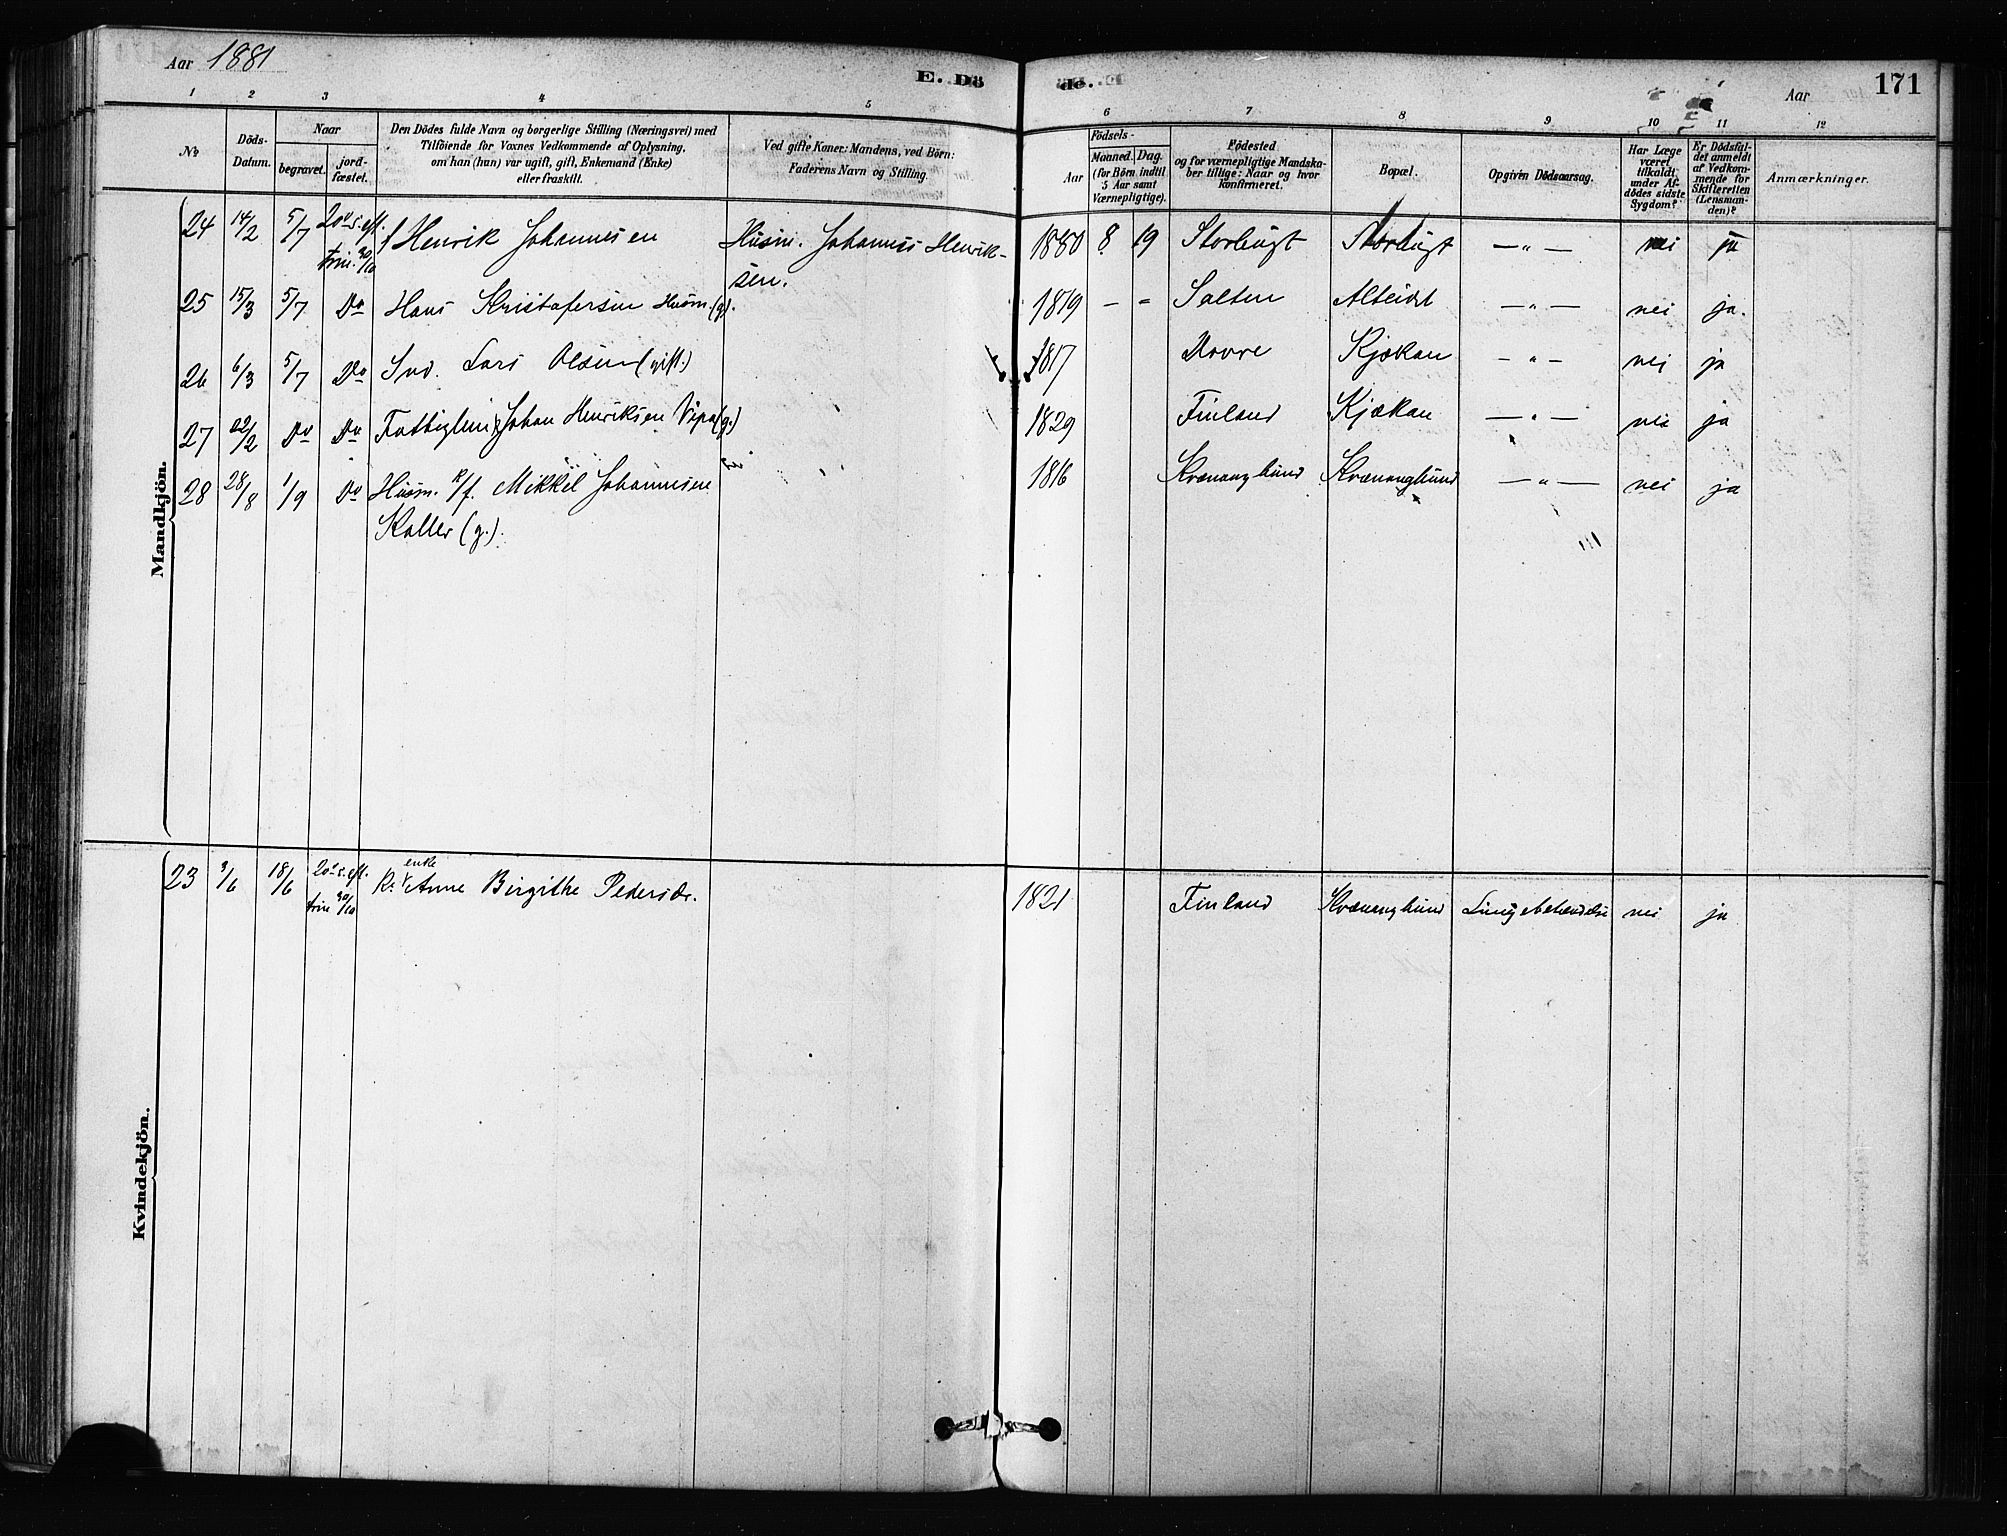 Aar 1881
E. Dö de.
Aar
171
1 2 3 4 5 6 7 8 9 10 11 12
No
Döds-Datum.
Naar
begravet.
jord-fæstet.
Den Dödes fulde Navn og borgerlige Stilling (Næringsvei) med
Tilföiende for Voxnes Vedkommende af Oplysning,
om han (hun) var ugift, gift, Enkemand (Enke)
eller fraskilt.
Ved gifte Koner: Mandens, ved Börn:
Faderens Navn og Stilling.
Födsels-
Aar
Maaned. Dag.
(for Börn indtil
5 Aar samt
Værnepligtige).
Födested
og for værnepligtige Mandska-
ber tillige: Naar og hvor
konfirmeret.
Bopæl.
Opgiven Dödsaarsag.
Har Læge
været
tilkaldt
under Af-
dödes sidste
Sygdom?
Er Dödsfal-
det anmeldt
af Vedkom-
mende for
Skifteretten
(Lensman-
den)?
Anmærkninger.
Mandkjön.
24 14/2 5/7 20de s. eft. trin. 30/10 Henrik Johannesen Husm. Johannes Henrik-
sen. 1880 8 19 Storbugt Storbugt — " — nei ja
25 15/3 5/7 Do Hans Kristofersen Husm. (g). 1819 - - Salten Alteidet — " — nei ja.
26 6/3 5/7 Do Ind. Lars Olsen (gift.) 1817 Dovre Kjækan — " — nei ja
27 22/2 Do Do Fattiglem Johan Henriksen Vipa (g.) 1829 Finland Kjækan — " — nei ja
28 28/8 1/9 Do Husm. K/f. Mikkel Johannesen 1816 Kvænangbund Kvænangbund — " — nei ja
Koller (g.).
Kvindekjön.
23 9/6 18/6 20de s. eft. trin 30/10 K. enke Anne Birgithe Pedersdr. 1821 Finland Kvænangbund Lungebetændelse nei ja